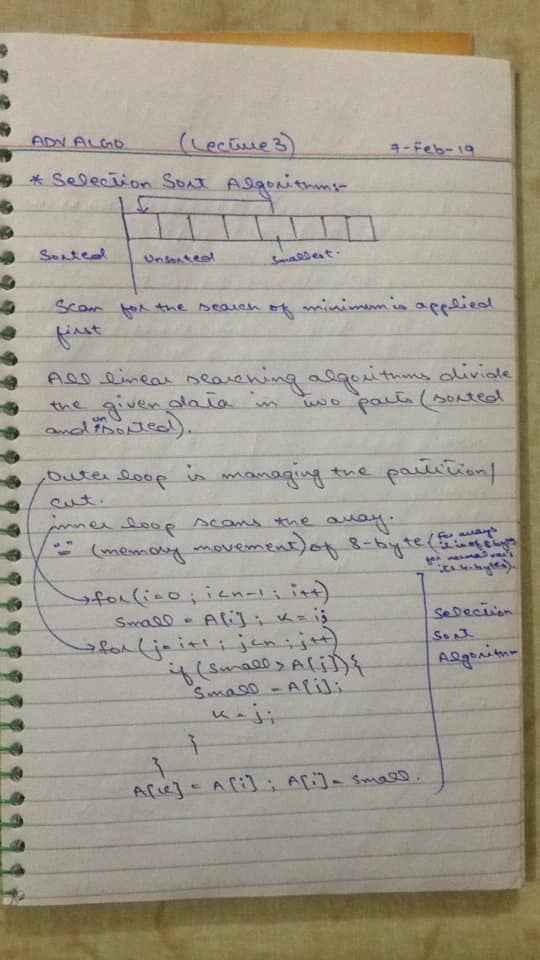 ADV ALGO (Lecture 3) 7-Feb-19
* Selection Sort Algorithms-
Sorted Unsorted Smallest.
Scan for the search of minimum is applied
first
All linear searching algorithms divide
the given data in two parts (sorted
and unsorted).
Outer loop is managing the partition/
cut.
inner loop scans the array.
"=" (memory movement) of 8-byte (for arrays
it is of 8 bytes
for normal var
its 4-bytes).
for(i=0 ; i<n-1 ; i++)
Small = A[i] ; K = i;
for(j=i+1 ; j<n ; j++)
if (Small > A[j]) {
Small = A[j];
K = j;
}
}
A[k] = A[i] ; A[i] = Small.
Selection
Sort
Algorithm